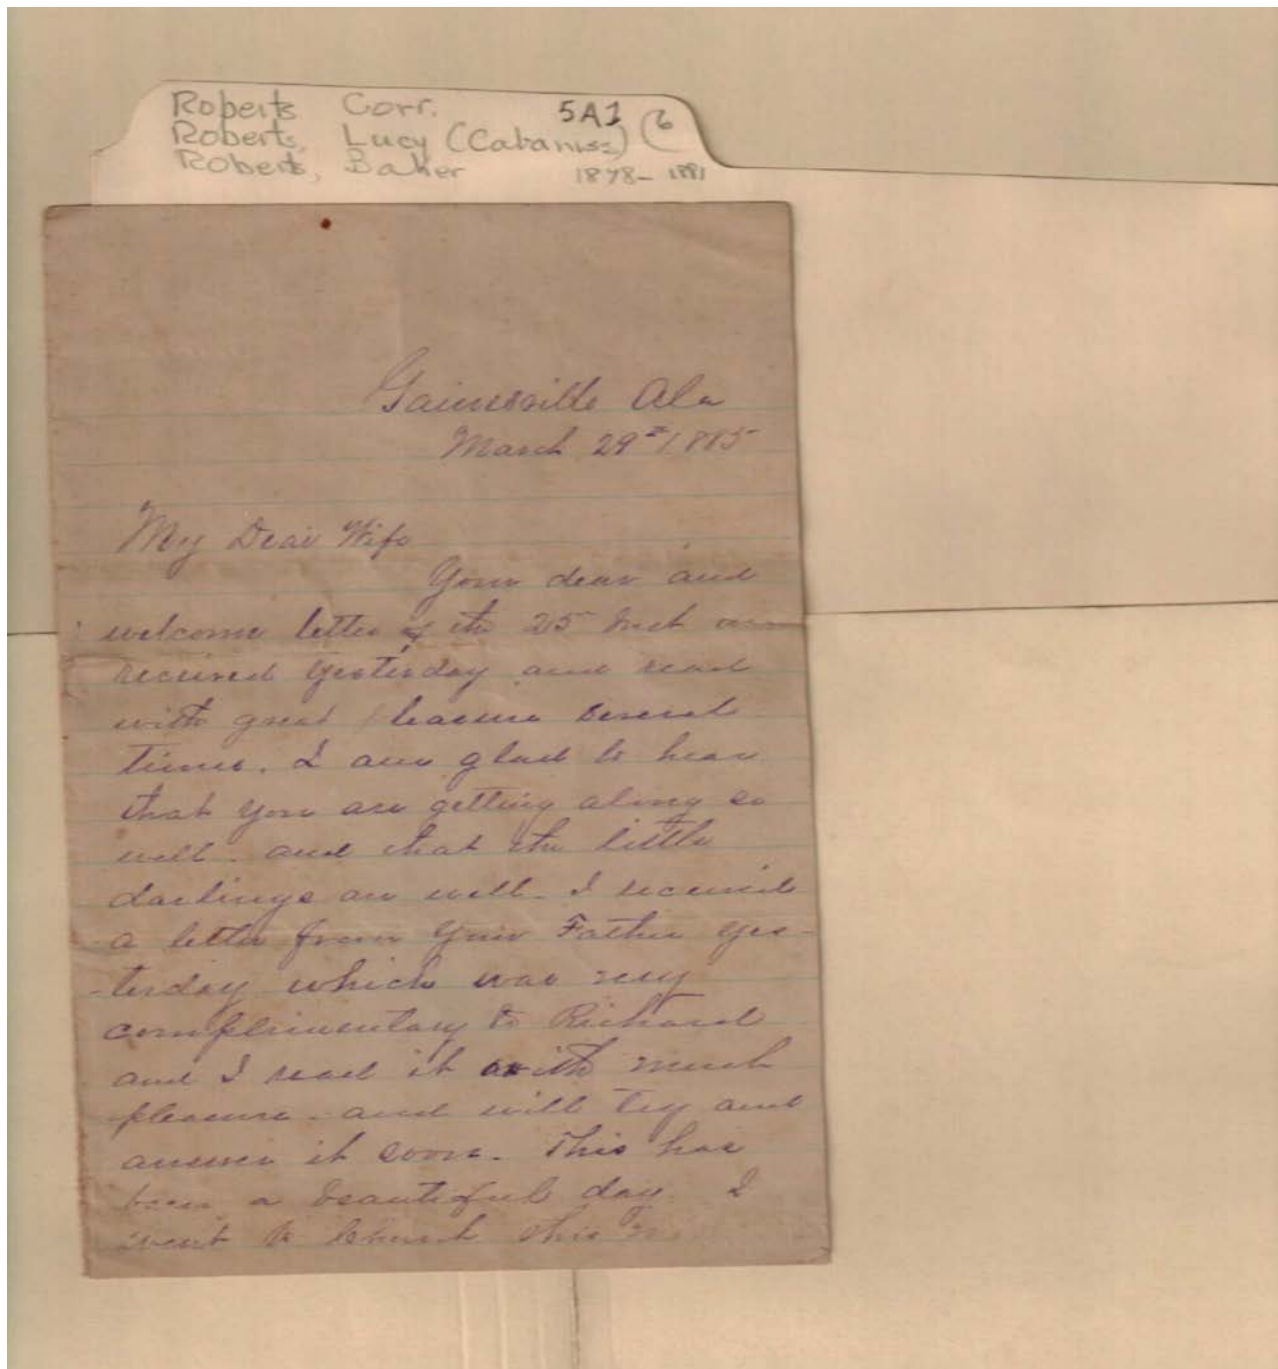 Roberts Corr. 5A1 (6
Roberts, Lucy (Cabaniss)
Roberts, Baker 1878-1881
Gainesville Ala
March 29th 1885
My Dear Wife
Your dear and
welcome letter of the 25 inst was
received yesterday and read
with great pleasure several
times. I am glad to hear
that you are getting along so
well. and that the little
darlings are well. I received
a letter from your Father yes-
-terday which was very
complimentary to Richard
and I read it with much
pleasure. and will try and
answer it soon. This has
been a beautiful day. I
went to Church this